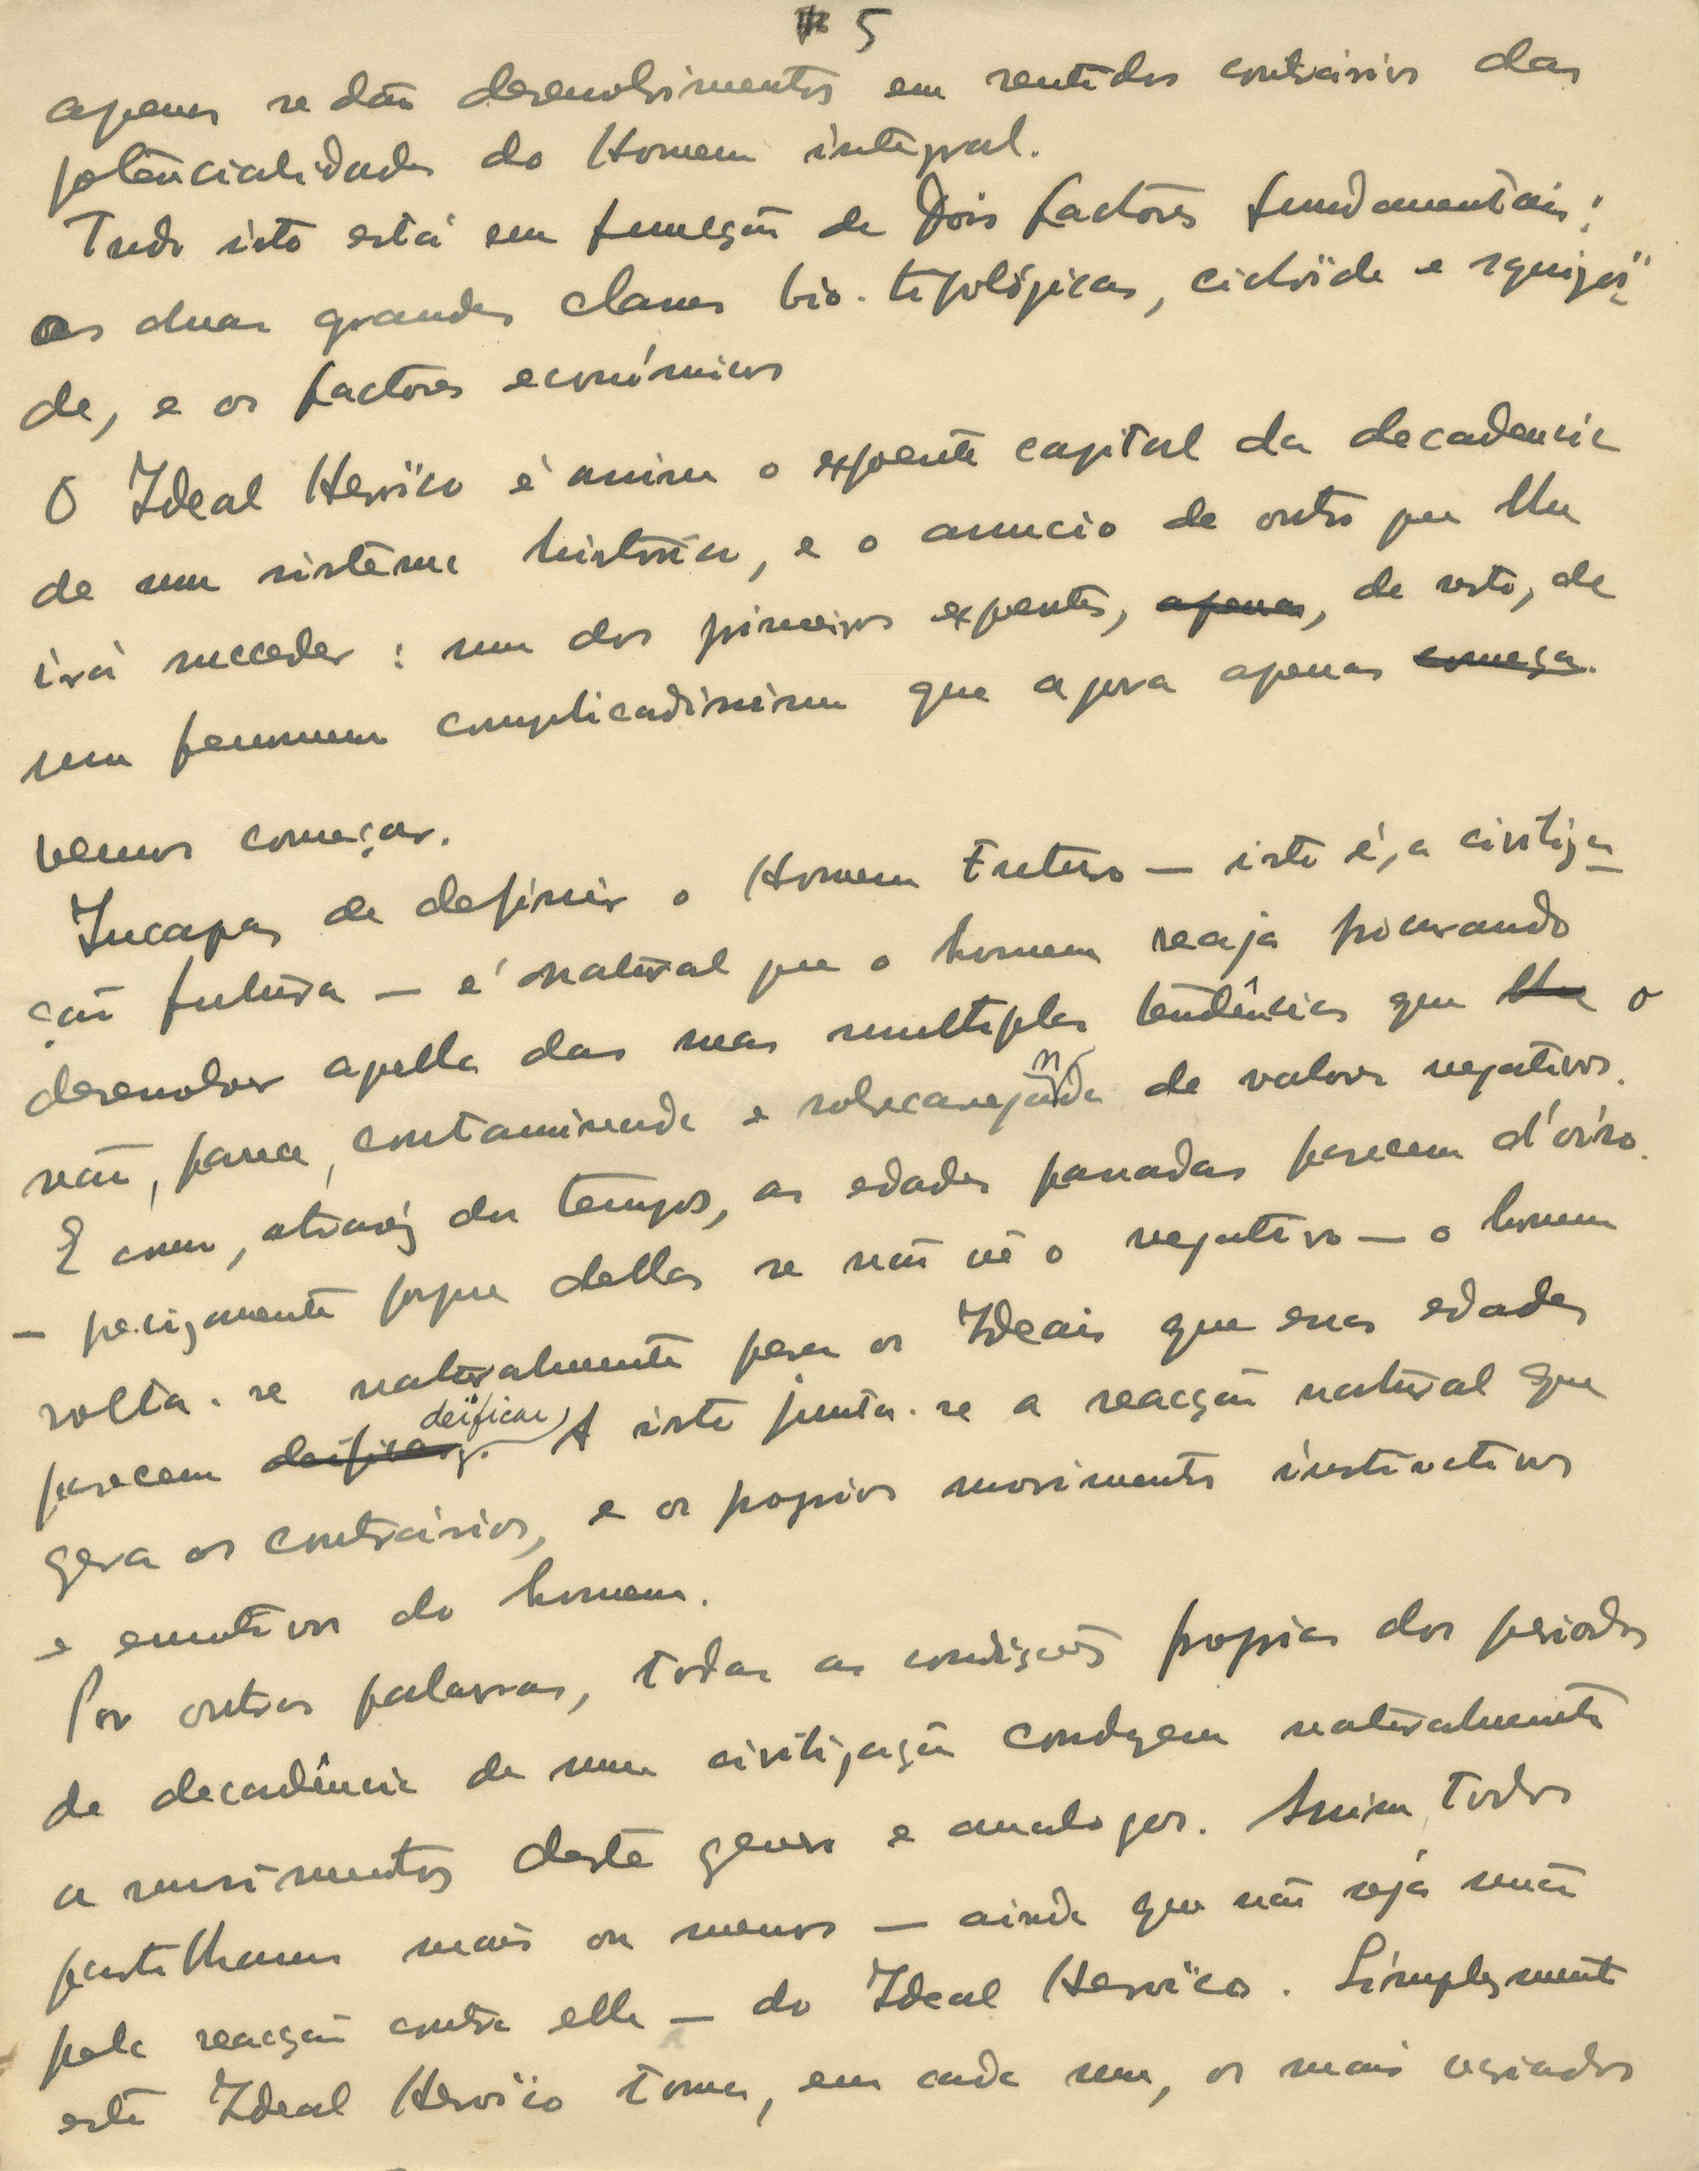 5
apenas se dão desenvolvimentos em sentidos contrários das
potencialidades do Homem integral.
Tudo isto está em funcção de Dois factores fundamentais:
as duas grandes classes bio-tipológicas, ciclóïde e squizoï-
de, e os factores económicos
O Ideal Heroïco é assim o expoente capital da decadencia
de um sistema histórico, e o anuncio de outro que lhe
irá succeder: um dos primeiros expoentes, apenas, de resto, de
um fenomeno complicadissimo que agora apenas começa.
vemos começar.
Incapaz de definir o Homem Futuro — isto é, a civiliza-
ção futura — é natural que o homem reaja procurando
desenvolver aquella das suas multiplas tendências que lhe o
não, parece, contaminada e sobrecarregada de valores negativos.
E como, atravéz dos tempos, as edades passadas parecem d'óiro
— precizamente porque dellas se não vê o negativo — o homem
volta-se naturalmente para os Ideais que essas edades
parecem deificar. deificar, A isto junta-se a reacção natural que
gera os contrários, e os proprios movimentos instinctivos
e emotivos do homem.
Por outras palavras, todas as condições proprias dos periodos
de decadência de uma civilização conduzem naturalmente
a movimentos deste genero e analogos. Assim, todos
partilhamos mais ou menos — ainda que não seja senão
pela reacção contra elle — do Ideal Heroïco. Simplesmente
este Ideal Heroïco toma, em cada um, os mais variados